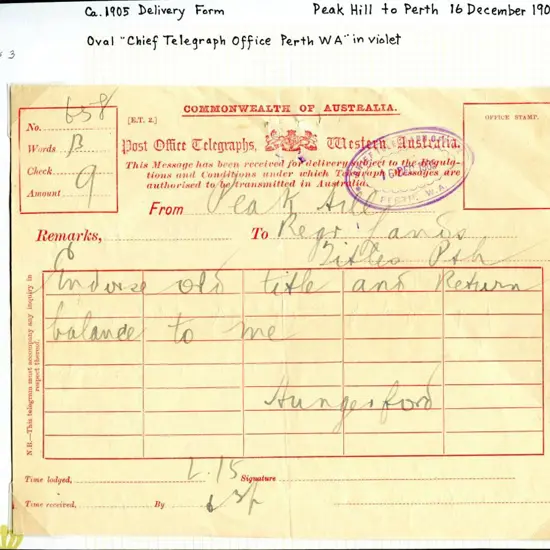 Ca. 1905 Delivery Form Peak Hill to Perth 16 December 190
Oval "Chief Telegraph Office Perth WA" in violet
3
COMMONWEALTH OF AUSTRALIA.
[E.T. 2.]
OFFICE STAMP.
No. 658
Words B
Check
Amount 9
Post Office Telegraphs, Western Australia.
This Message has been received for delivery subject to the Regula-
tions and Conditions under which Telegraph Messages are
authorised to be transmitted in Australia.
PERTH, W.A.
From Peak Hill
Remarks, To Regr Lands
Titles Pth
Endorse old title and Return
balance to me
Hungerford
N.B.—This telegram must accompany any inquiry in
respect thereof.
Time lodged, 2.15 Signature
Time received, By